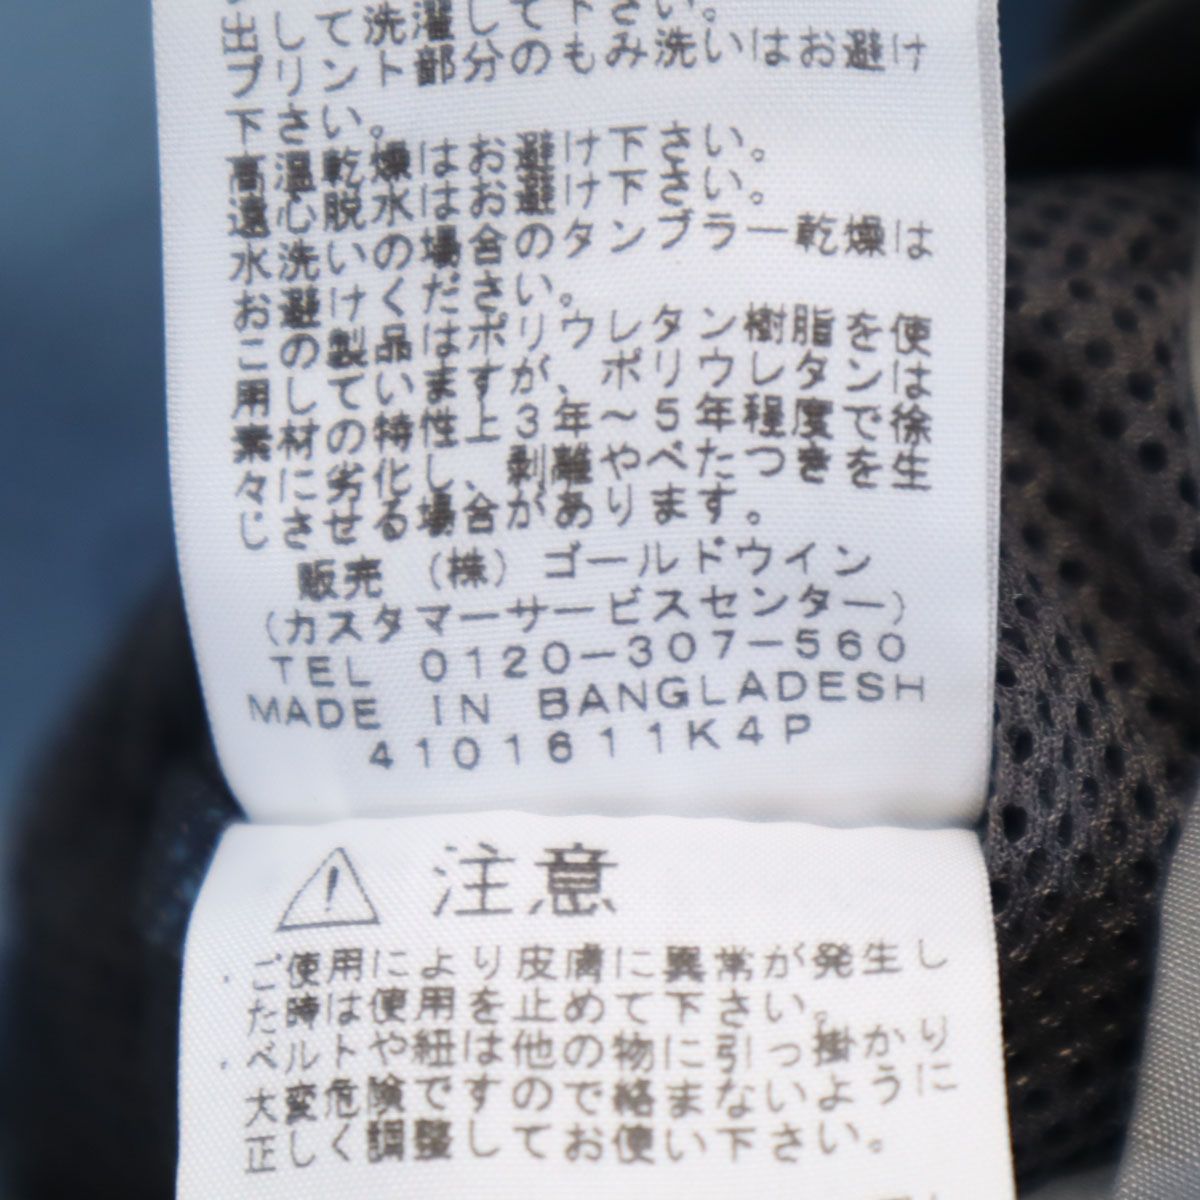 出して洗濯して下さい。
プリント部分のもみ洗いはお避け
下さい。
高温乾燥はお避け下さい。
遠心脱水はお避け下さい。
水洗いの場合のタンブラー乾燥は
お避けください。
この製品はポリウレタン樹脂を使
用していますが、ポリウレタンは
素材の特性上3年〜5年程度で徐
々に劣化し、剥離やべたつきを生
じさせる場合があります。
販売 (株) ゴールドウイン
(カスタマーサービスセンター)
TEL 0120-307-560
MADE IN BANGLADESH
4101611K4P
注意
・ご使用により皮膚に異常が発生し
た時は使用を止めて下さい。
・ベルトや紐は他の物に引っ掛かり
大変危険ですので絡まないように
正しく調整してお使い下さい。